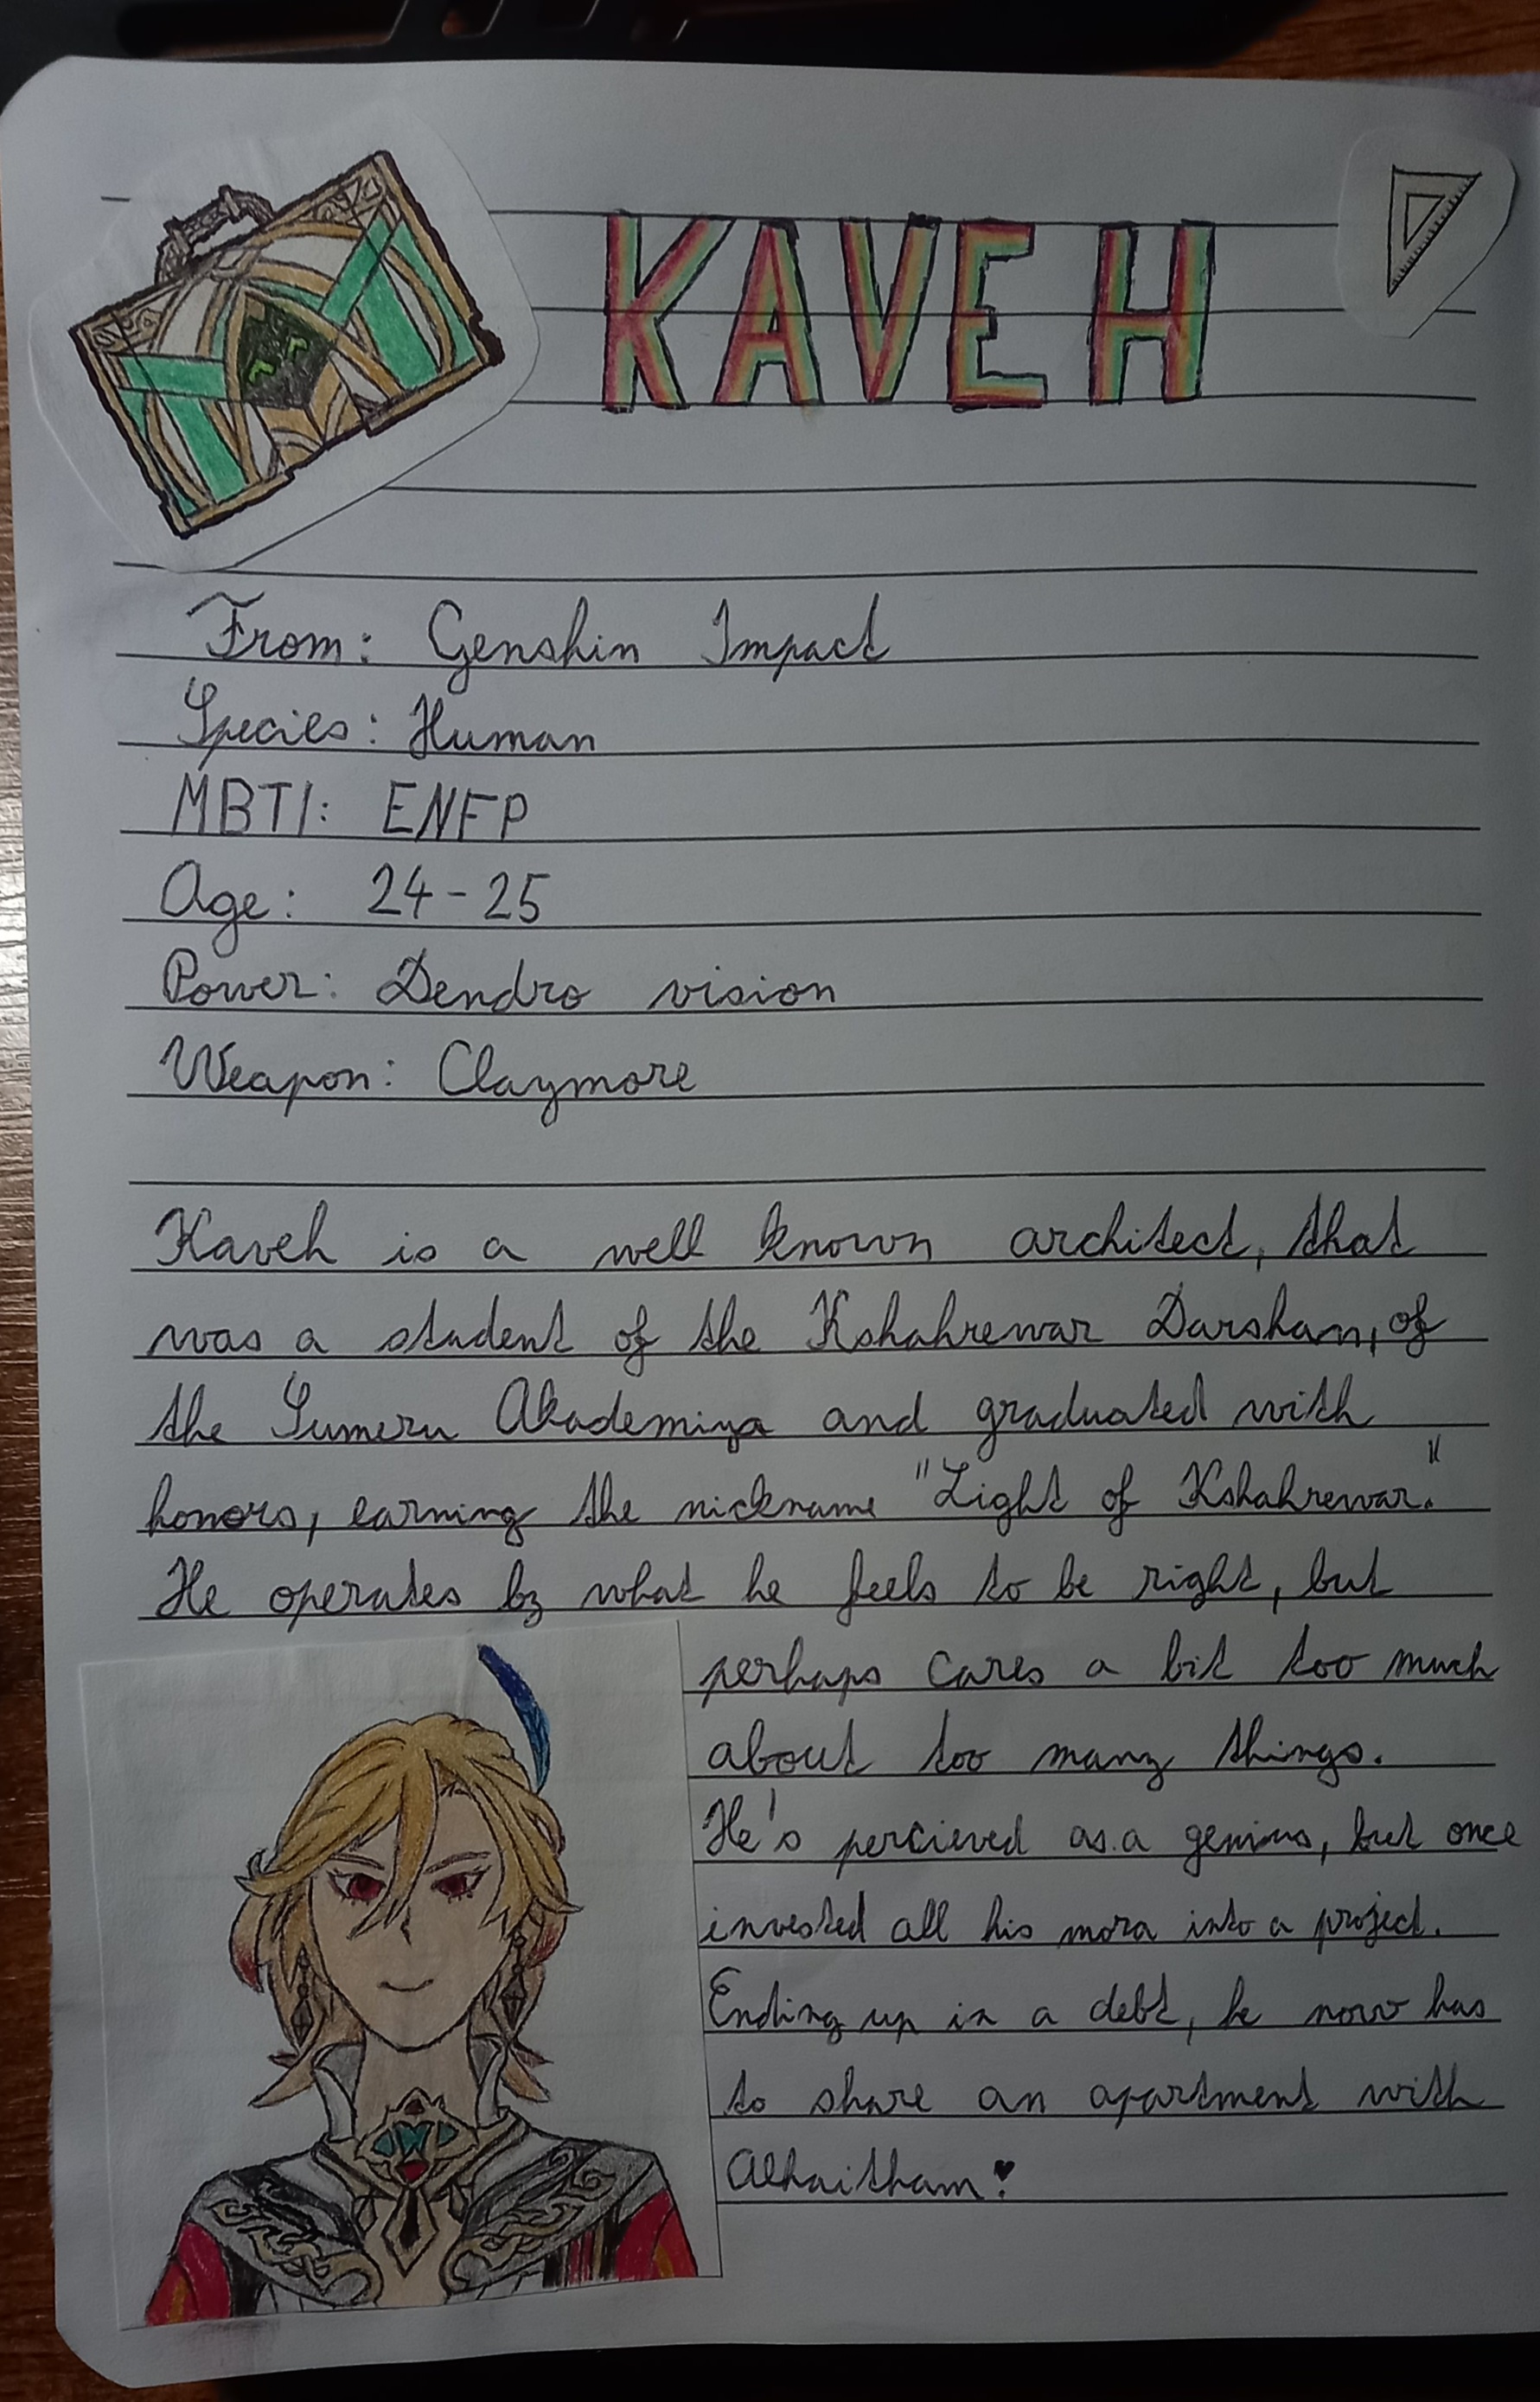 KAVEH
From: Genshin Impact
Species: Human
MBTI: ENFP
Age: 24-25
Power: Dendro vision
Weapon: Claymore
Kaveh is a well known architect, that
was a student of the Kshahrewar Darshan, of
the Sumeru Akademiya and graduated with
honors, earning the nickname "Light of Kshahrewar."
He operates by what he feels to be right, but
perhaps cares a bit too much
about too many things.
He's percieved as a genius, but once
invested all his mora into a project.
Ending up in a debt, he now has
to share an apartment with
Alhaitham.♥